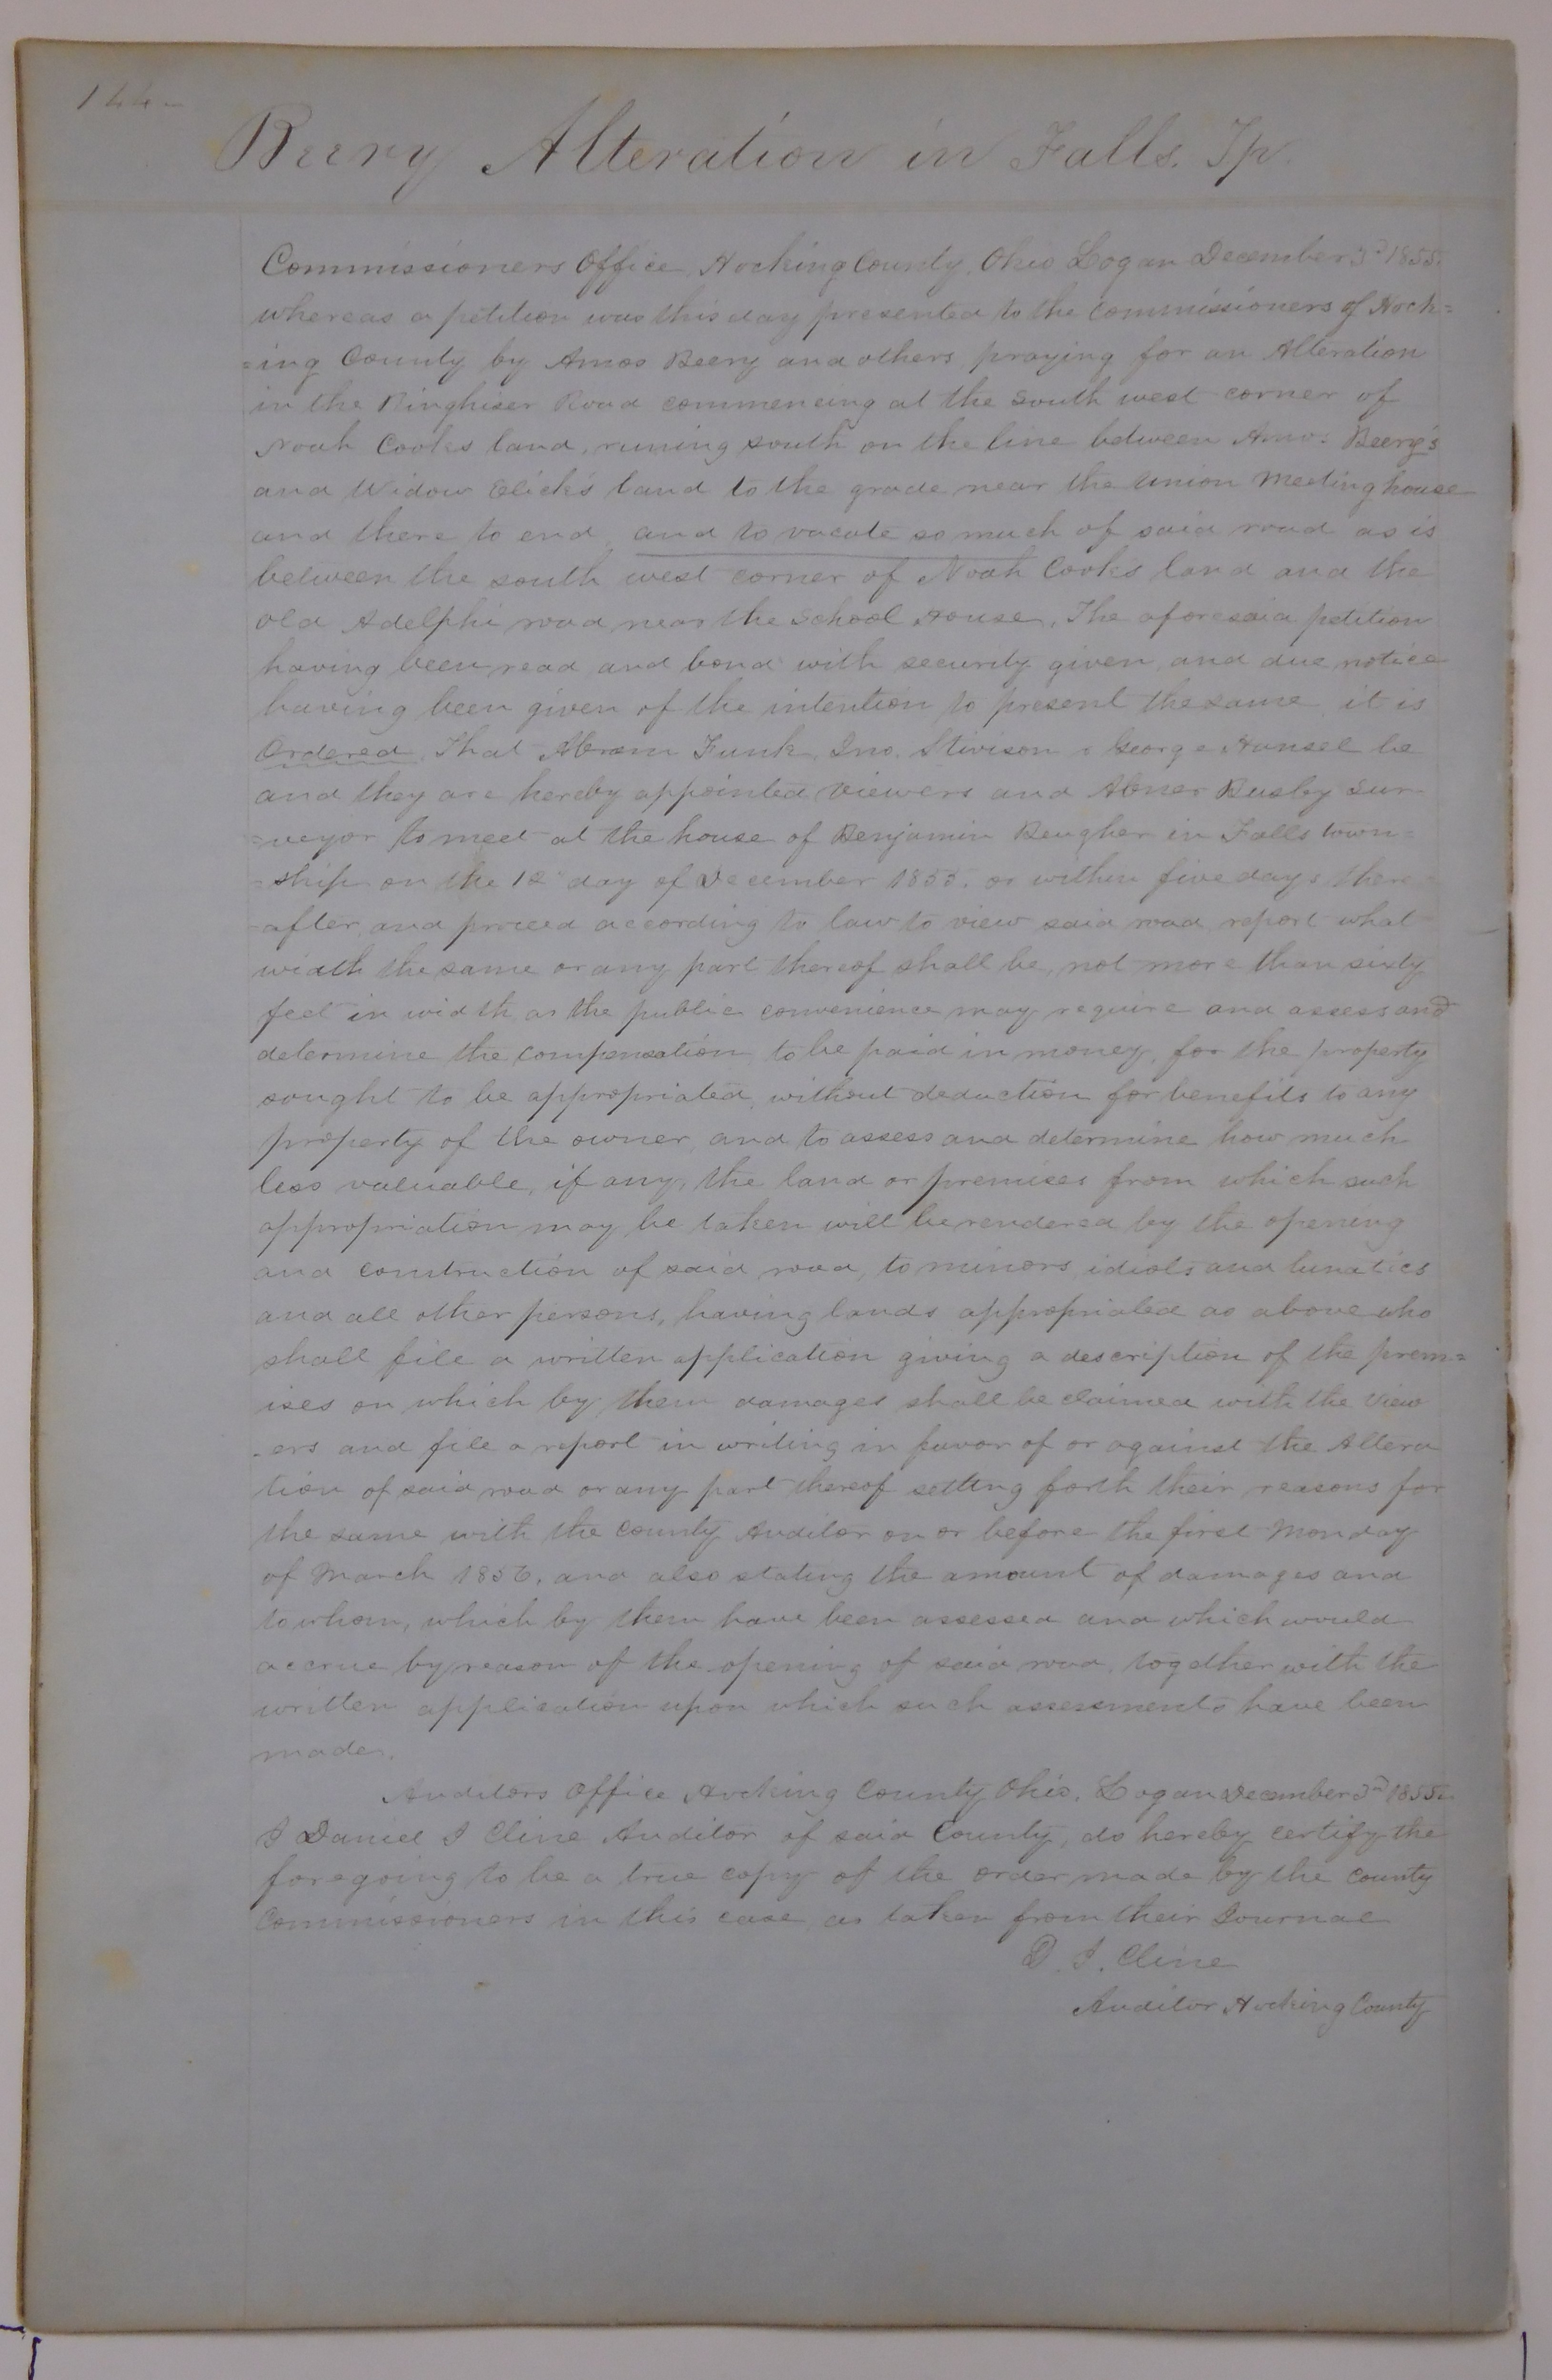 144
Beery Alteration in Falls. Tp.
Commissioners Office, Hocking County, Ohio Logan December 3rd 1855.
whereas a petition was this day presented to the Commissioners of Hock=
=ing County by Amos Beery and others praying for an Alteration
in the Ringhiser Road commencing at the South west corner of
Noah Cooks land, runing south on the line between Amos Beery's
and Widow Click's land to the grade near the Union Meeting house
and there to end, and to vacate so much of said road as is
between the south west corner of Noah Cook's land and the
old Adelphi road near the School House, The aforesaid petition
having been read and bond with security given, and due notice
having been given of the intention to present the same, it is
Ordered, That Abram Funk, Jno. Stivison & George Hansel be
and they are hereby appointed Viewers and Abner Busby Sur
=veyor to meet at the house of Benjamin Beugher in Falls town=
=ship on the day of December 1855. or within five days there=
=after, and proceed according to law to view said road, report what
width the same or any part thereof shall be, not more than sixty
feet in width as the public convenience may require and assess and
determine the compensation to be paid in money, for the property
sought to be appropriated, without deduction for benefits to any
property of the owner, and to assess and determine how much
less valuable, if any, the land or premises from which such
appropriation may be taken will be rendered by the opening
and construction of said road, to minors, idiots and lunatics
and all other persons, having lands appropriated as above who
shall file a written application giving a description of the prem=
ises on which by them damages shall be claimed with the View
-ers and file a report in writing in favor of or against the Altera
tion of said road or any part thereof setting forth their reasons for
the same with the County Auditor on or before the first Monday
of March 1856. and also stating the amount of damages and
to whom, which by them have been assessed and which would
accrue by reason of the opening of said road, together with the
written application upon which such assessments have been
made.
Auditors Office Hocking County Ohio. Logan December 3rd 1855.
I Daniel I Cline Auditor of said County, do hereby certify the
foregoing to be a true copy of the order made by the County
Commissioners in this case as taken from their Journal
D. I. Cline
Auditor Hocking County